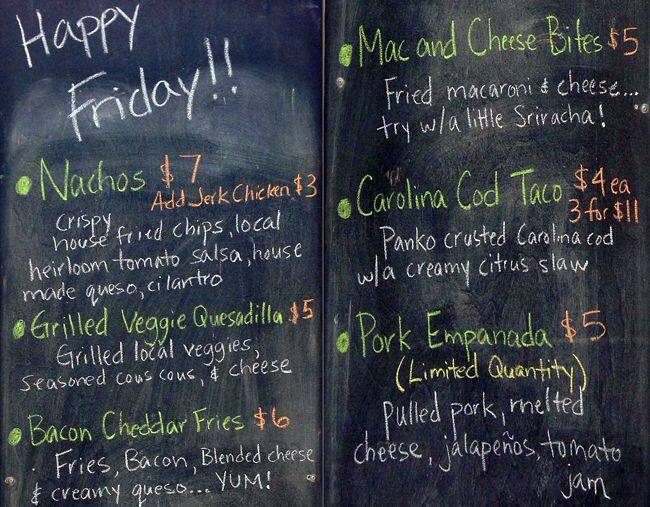 Happy
Friday!!
Nachos $7
Add Jerk Chicken $3
crispy
house fried chips, local
heirloom tomato salsa, house
made queso, cilantro
Grilled Veggie Quesadilla $5
Grilled local veggies,
seasoned cous cous, & cheese
Bacon Cheddar Fries $6
Fries, Bacon, Blended cheese
& creamy queso... YUM!
Mac and Cheese Bites $5
Fried macaroni & cheese...
try w/a little Sriracha!
Carolina Cod Taco $4 ea
3 for $11
Panko crusted Carolina cod
w/a creamy citrus slaw
Pork Empanada $5
(Limited Quantity)
Pulled pork, melted
cheese, jalapeños, tomato
jam